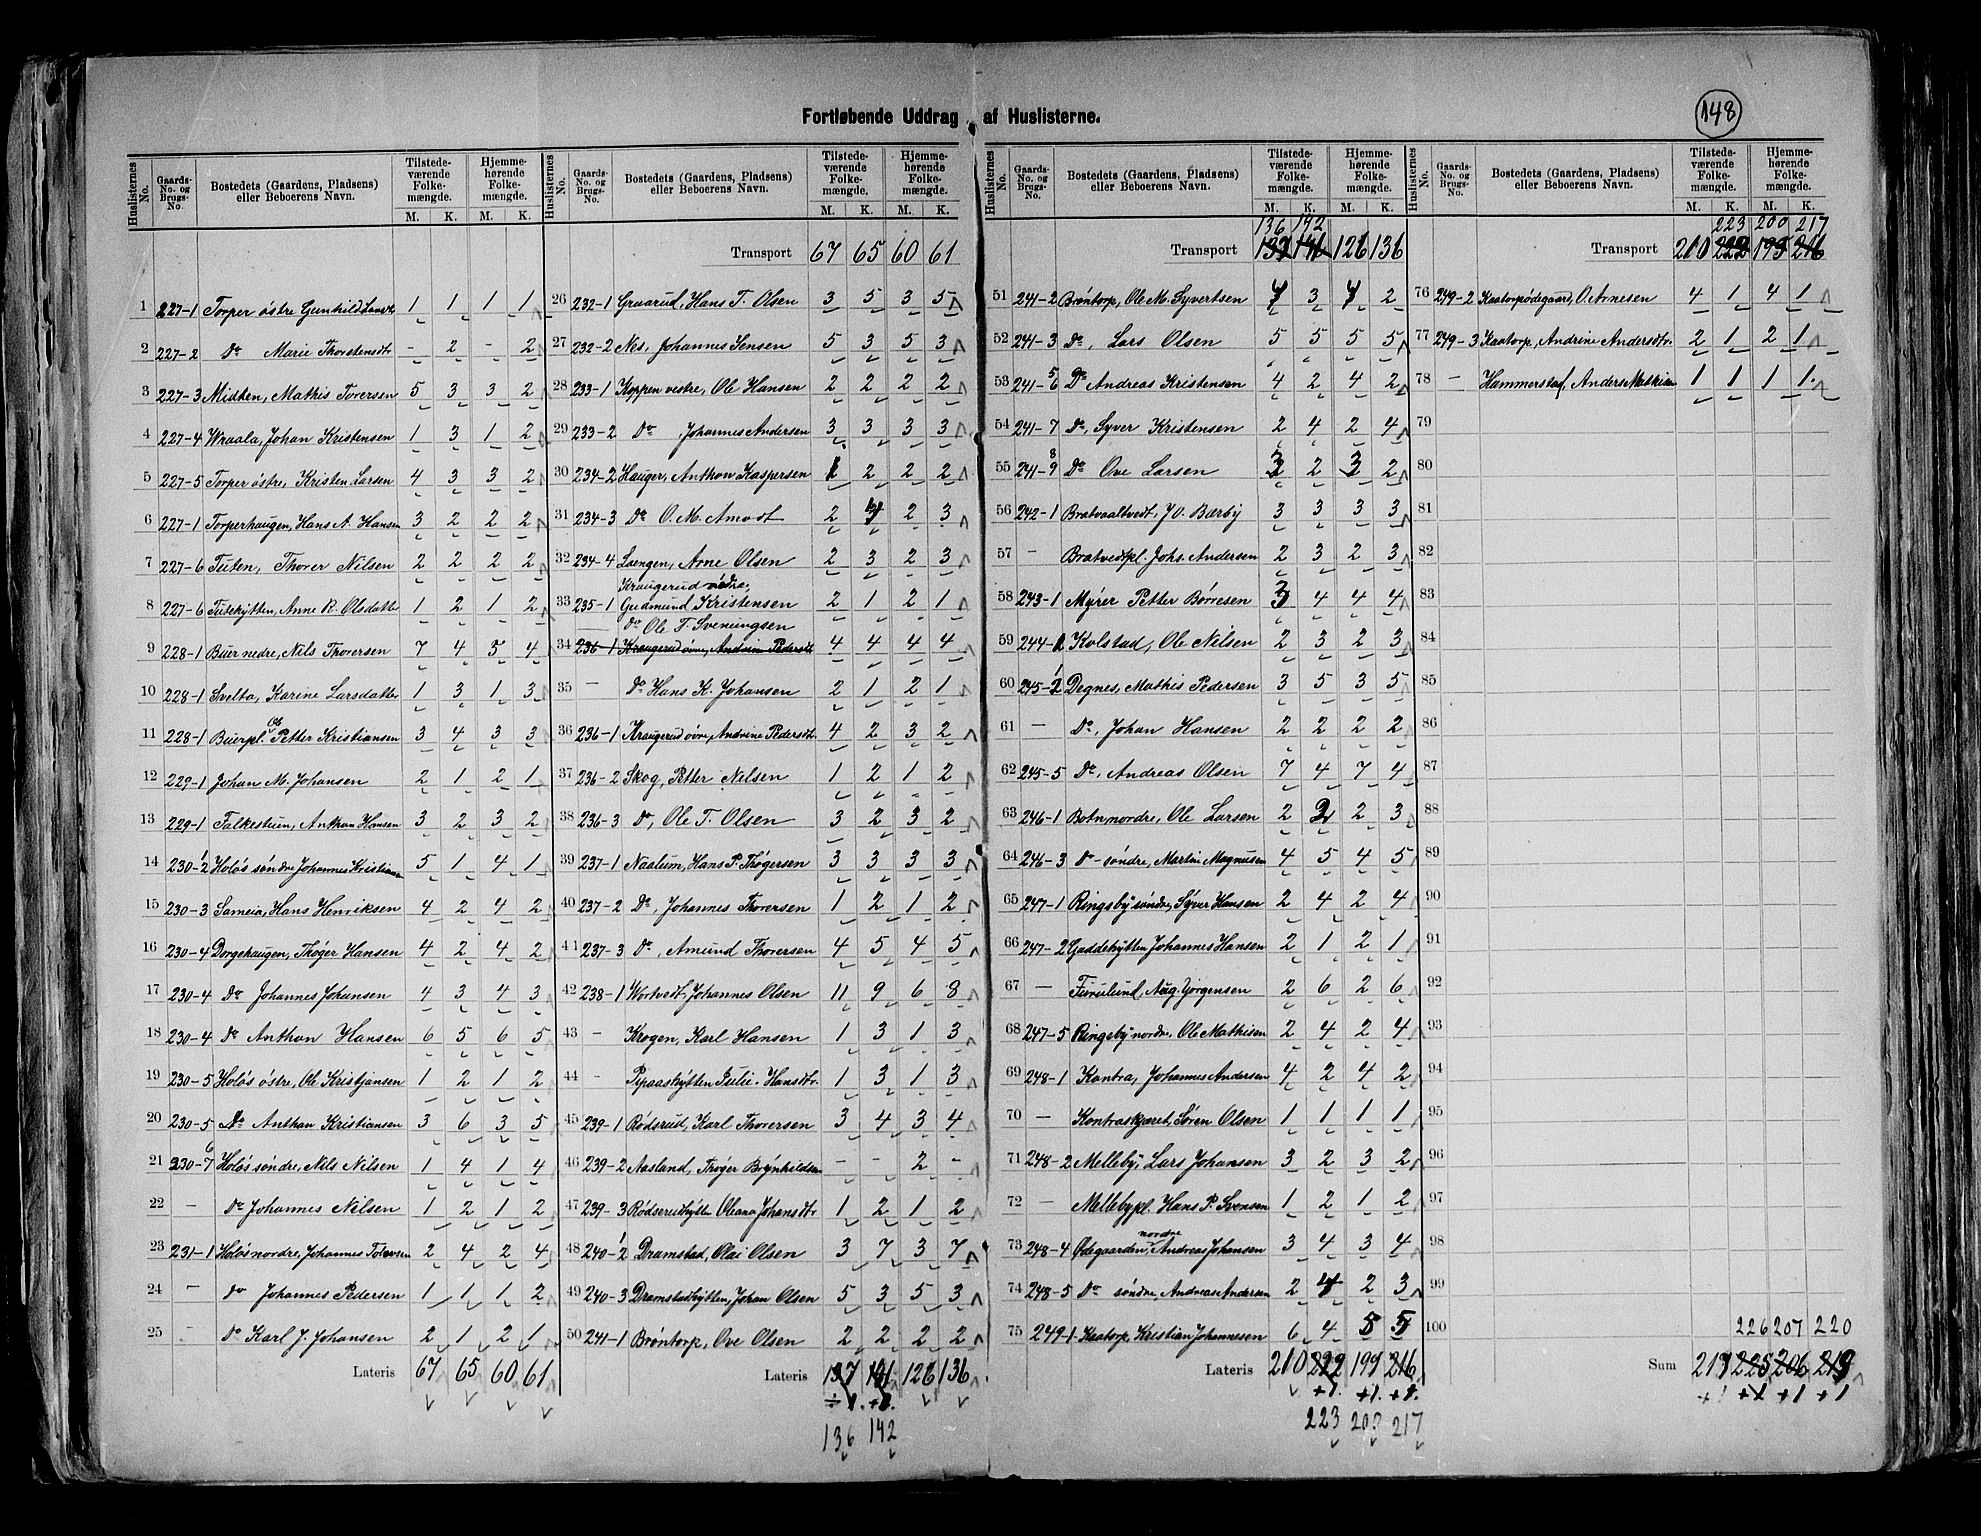 148
Fortløbende Uddrag af Huslisterne.
Huslisternes No. | Gaards-No. og Brugs-No. | Bostedets (Gaardens, Pladsens) eller Beboerens Navn. | Tilstedeværende Folkemængde. M. K. | Hjemmehørende Folkemængde. M. K.
1 227-1 Torper østre Gunhild 1 1 1 1
2 227-2 Do Marie Thorstensdtr - 2 - 2
3 227-3 Midten, Mathis Torersen 5 3 3 2
4 227-4 Wraala, Johan Kristensen 1 3 1 2
5 227-5 Torper østre, Kristen Larsen 4 3 3 2
6 227-1 Torperhaugen, Hans A. Hansen 3 2 2 2
7 227-6 Tuten, Thorer Nilsen 2 2 2 2
8 227-6 Tutehytten, Anne R. Olsdatter 1 2 1 2
9 228-1 Buer nedre, Nils Thorersen 7 4 5 4
10 228-1 Svelta, Karine Larsdatter 1 3 1 3
11 228-1 Buerpl. Ole Petter Kristiansen 3 4 3 3
12 229-1 Johan M. Johansen 2 1 2 1
13 229-1 Falkestuen, Anthon Hansen 3 2 3 2
14 230-1 2 Holøs søndre Johannes Kristians 5 1 4 1
15 230-3 Sameia, Hans Henriksen 4 2 4 2
16 230-4 Dorgehaugen, Thøger Hansen 4 2 4 2
17 230-4 Do Johannes Johansen 4 3 4 3
18 230-4 Do Anthon Hansen 6 5 6 5
19 230-5 Holøs østre, Ole Kristjansen 1 2 1 2
20 230-5 Do Anthon Kristiansen 3 6 3 5
21 230-6 7 Holøs søndre, Nils Nilsen 1 4 1 4
22 - Do Johannes Nilsen 1 2 1 2
23 231-1 Holøs nordre, Johannes 2 4 2 4
24 - do Johannes Pedersen 1 1 1 2
25 - Do Karl J. Johansen 2 1 2 1
Lateris 67 65 60 61
Transport 67 65 60 61
26 232-1 Graarud, Hans T. Olsen 3 5 3 5
27 232-2 Nes, Johannes Jensen 5 3 5 3
28 233-1 Koppen vestre, Ole Hansen 2 2 2 2
29 233-2 Do Johannes Andersen 3 3 3 3
30 234-2 Hauger, Anthon Kaspersen 1 2 2 2
31 234-3 Do O. M. Amodt 2 3 2 3
32 234-4 Loengen, Arne Olsen 2 3 2 3
Kraugerud nedre,
33 235-1 Gudmund Kristensen 2 1 2 1
Do Ole F. Sveningsen
34 236-1 Kraugerud øvre, Andrine Pedersdt 4 4 4 4
35 - Do Hans K. Johansen 2 1 2 1
36 236-1 Kraugerud øvre, Andrine Pedersdt. 4 2 3 2
37 236-2 Skog, Petter Nilsen 1 2 1 2
38 236-3 Do, Ole T. Olsen 3 2 3 2
39 237-1 Naalum, Hans P. Thøgersen 3 3 3 3
40 237-2 Do, Johannes Thorersen 1 2 1 2
41 237-3 Do, Amund Thorersen 4 5 4 5
42 238-1 Wortvedt, Johannes Olsen 11 9 6 8
43 - Krogen, Karl Hansen 1 3 1 3
44 - Pipaashytten Julie Hansdtr. 1 3 1 3
45 239-1 Rødsrud, Karl Thorersen 3 4 3 4
46 239-2 Aasland, Thøger Brynhildsen - - 2 -
47 239-3 Rødserudhytten Oleana Johansdtr 1 2 1 2
48 240-1 2 Dramstad, Olai Olsen 3 7 3 7
49 240-3 Dramstadhytten, Johan Olsen 5 3 5 3
50 241-1 Brøntorp, Ove Olsen 2 2 2 2
Lateris 137 141 126 136
÷ 1. +1.
136 142
136 142
Transport 137 141 126 136
51 241-2 Brøntorp, Ole M. Syvertsen 4 3 4 2
52 241-3 Do, Lars Olsen 5 5 5 5
53 241-5 6 Do Andreas Kristensen 4 2 4 2
54 241-7 Do, Syver Kristensen 2 4 2 4
55 241-8 9 Do Ove Larsen 3 2 3 2
56 242-1 Bratvaaltvedt, J. O. Bærby 3 3 3 3
57 - Bratvedtpl. Johs. Andersen 2 3 2 3
58 243-1 Myrer Petter Børresen 3 4 4 4
59 244-1 Kolstad, Ole Nilsen 2 3 2 3
60 245-1 2 Degnes, Mathis Pedersen 3 5 3 5
61 - Do, Johan Hansen 2 2 2 2
62 245-5 Do, Andreas Olsen 7 4 7 4
63 246-1 Botn nordre, Ole Larsen 2 2 2 3
64 246-3 Do - søndre, Martin Magnusen 4 5 4 5
65 247-1 Ringsby søndre, Syver Hansen 2 4 2 4
66 247-2 Gaddehytten Johannes Hansen 2 1 2 1
67 - Furulund, Aug. Jørgensen 2 6 2 6
68 247-5 Ringsby nordre, Ole Mathisen 2 4 2 4
69 248-1 Kontra, Johannes Andersen 4 2 4 2
70 - Kontraskjæret, Søren Olsen 1 1 1 1
71 248-2 Melleby, Lars Johansen 3 2 3 2
72 - Mellebypl. Hans P. Svensen 1 2 1 2
73 248-4 Ødegaarden nordre, Andreas Johansen 3 4 3 4
74 248-5 Do søndre, Andreas Andersen 2 4 2 3
75 249-1 Kaatorp, Kristian Johannesen 6 4 5 5
Lateris 210 222 199 216
+1. +1. +1.
223 200 217
223 200 217
Transport 210 222 199 216
76 249-2 Kaatorpødegaard, O. Arnesen 4 1 4 1
77 249-3 Kaatorp, Andrine Andersdtr. 2 1 2 1
78 - Hammerstad, Anders Mathisen 1 1 1 1.
79
80
81
82
83
84
85
86
87
88
89
90
91
92
93
94
95
96
97
98
99
100
226 207 220
Sum 217 225 206 219
+1 +1 +1 +1